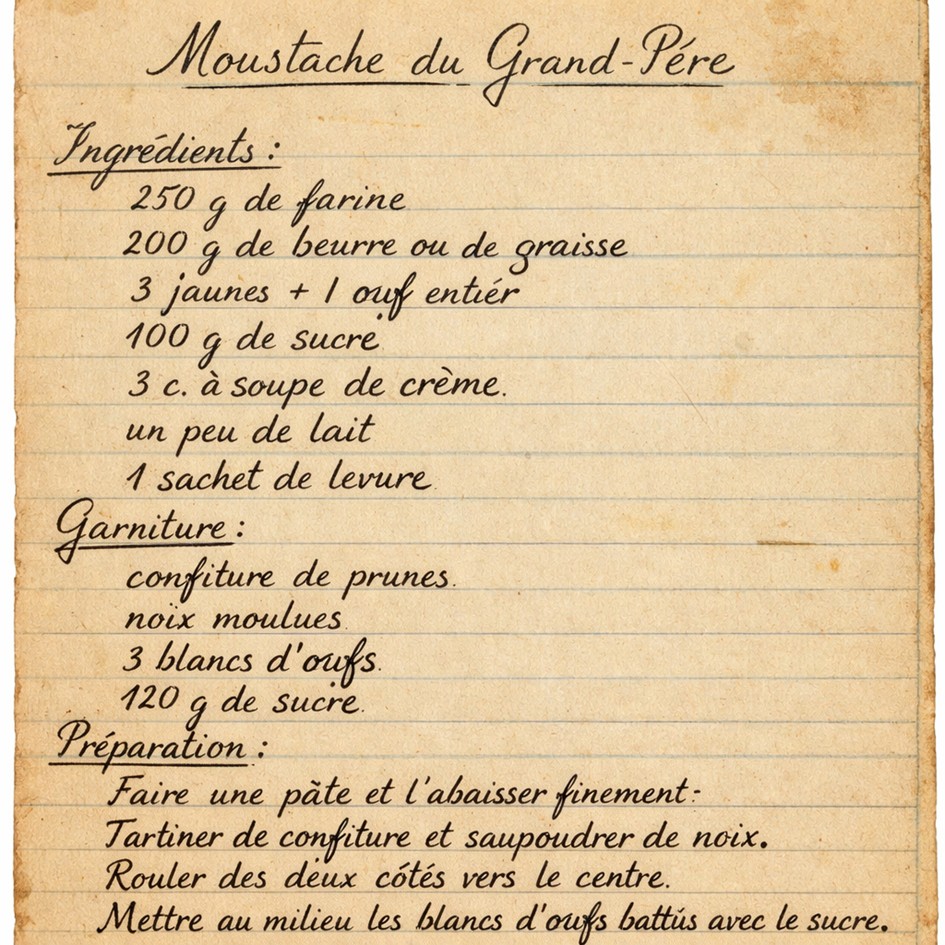 Moustache du Grand-Pére
Ingrédients :
250 g de farine
200 g de beurre ou de graisse
3 jaunes + 1 ouf entiér
100 g de sucre
3 c. à soupe de crème.
un peu de lait
1 sachet de levure
Garniture :
confiture de prunes.
noix moulues
3 blancs d'oufs.
120 g de sucre.
Préparation :
Faire une pâte et l'abaisser finement-
Tartiner de confiture et saupoudrer de noix.
Rouler des deux cótés vers le centre.
Mettre au milieu les blancs d'oufs battús avec le sucre.